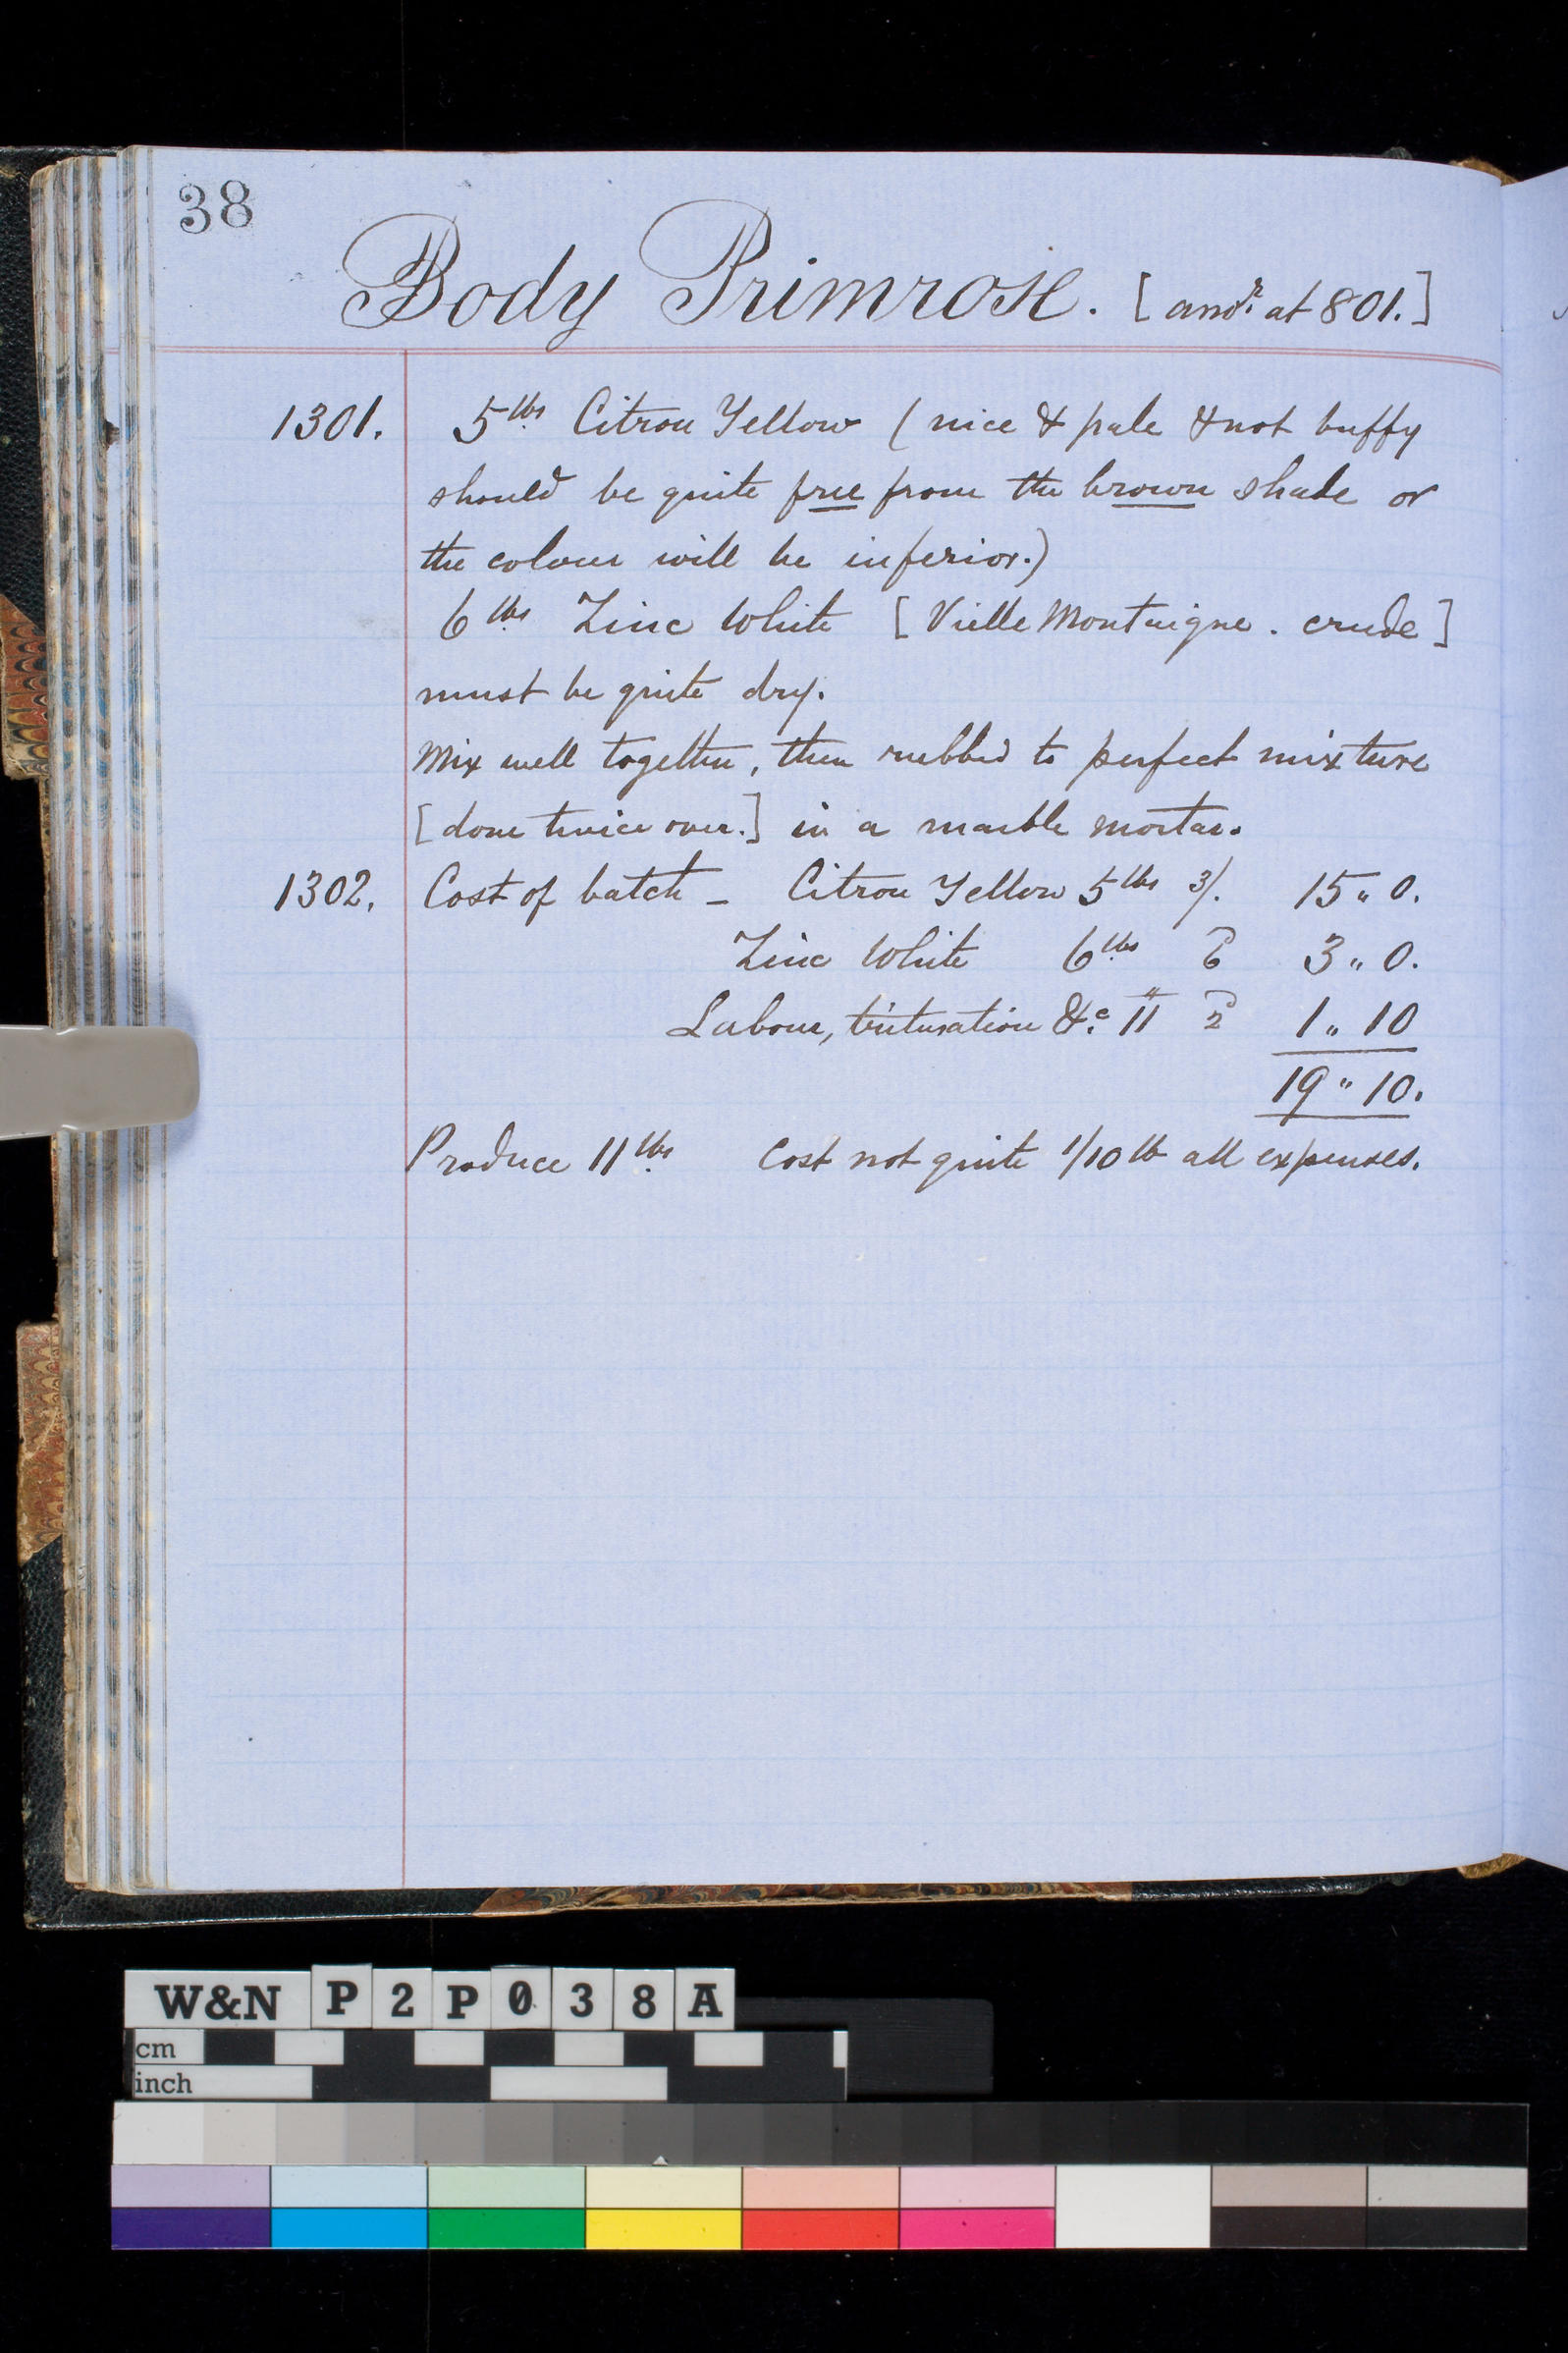 38
Body Primrose. [anoʳ. at 801.]
1301. 5 lbs Citron Yellow (nice & pale & not buffy
should be quite free from the brown shade or
the colour will be inferior.)
6 lbs Zinc White [Vielle Montaigne. crude]
must be quite dry.
Mix well together, then rubbed to perfect mixture
[done twice over.] in a marble mortar.
1302. Cost of batch – Citron Yellow 5 lbs 3/. 15 " 0.
Zinc White 6 lbs 6d 3 " 0.
Labour, trituration &c. 11 " 2d 1 " 10
19 " 10.
Produce 11 lbs Cost not quite 1/10 lb all expenses.
W&N P2P038A
cm
inch